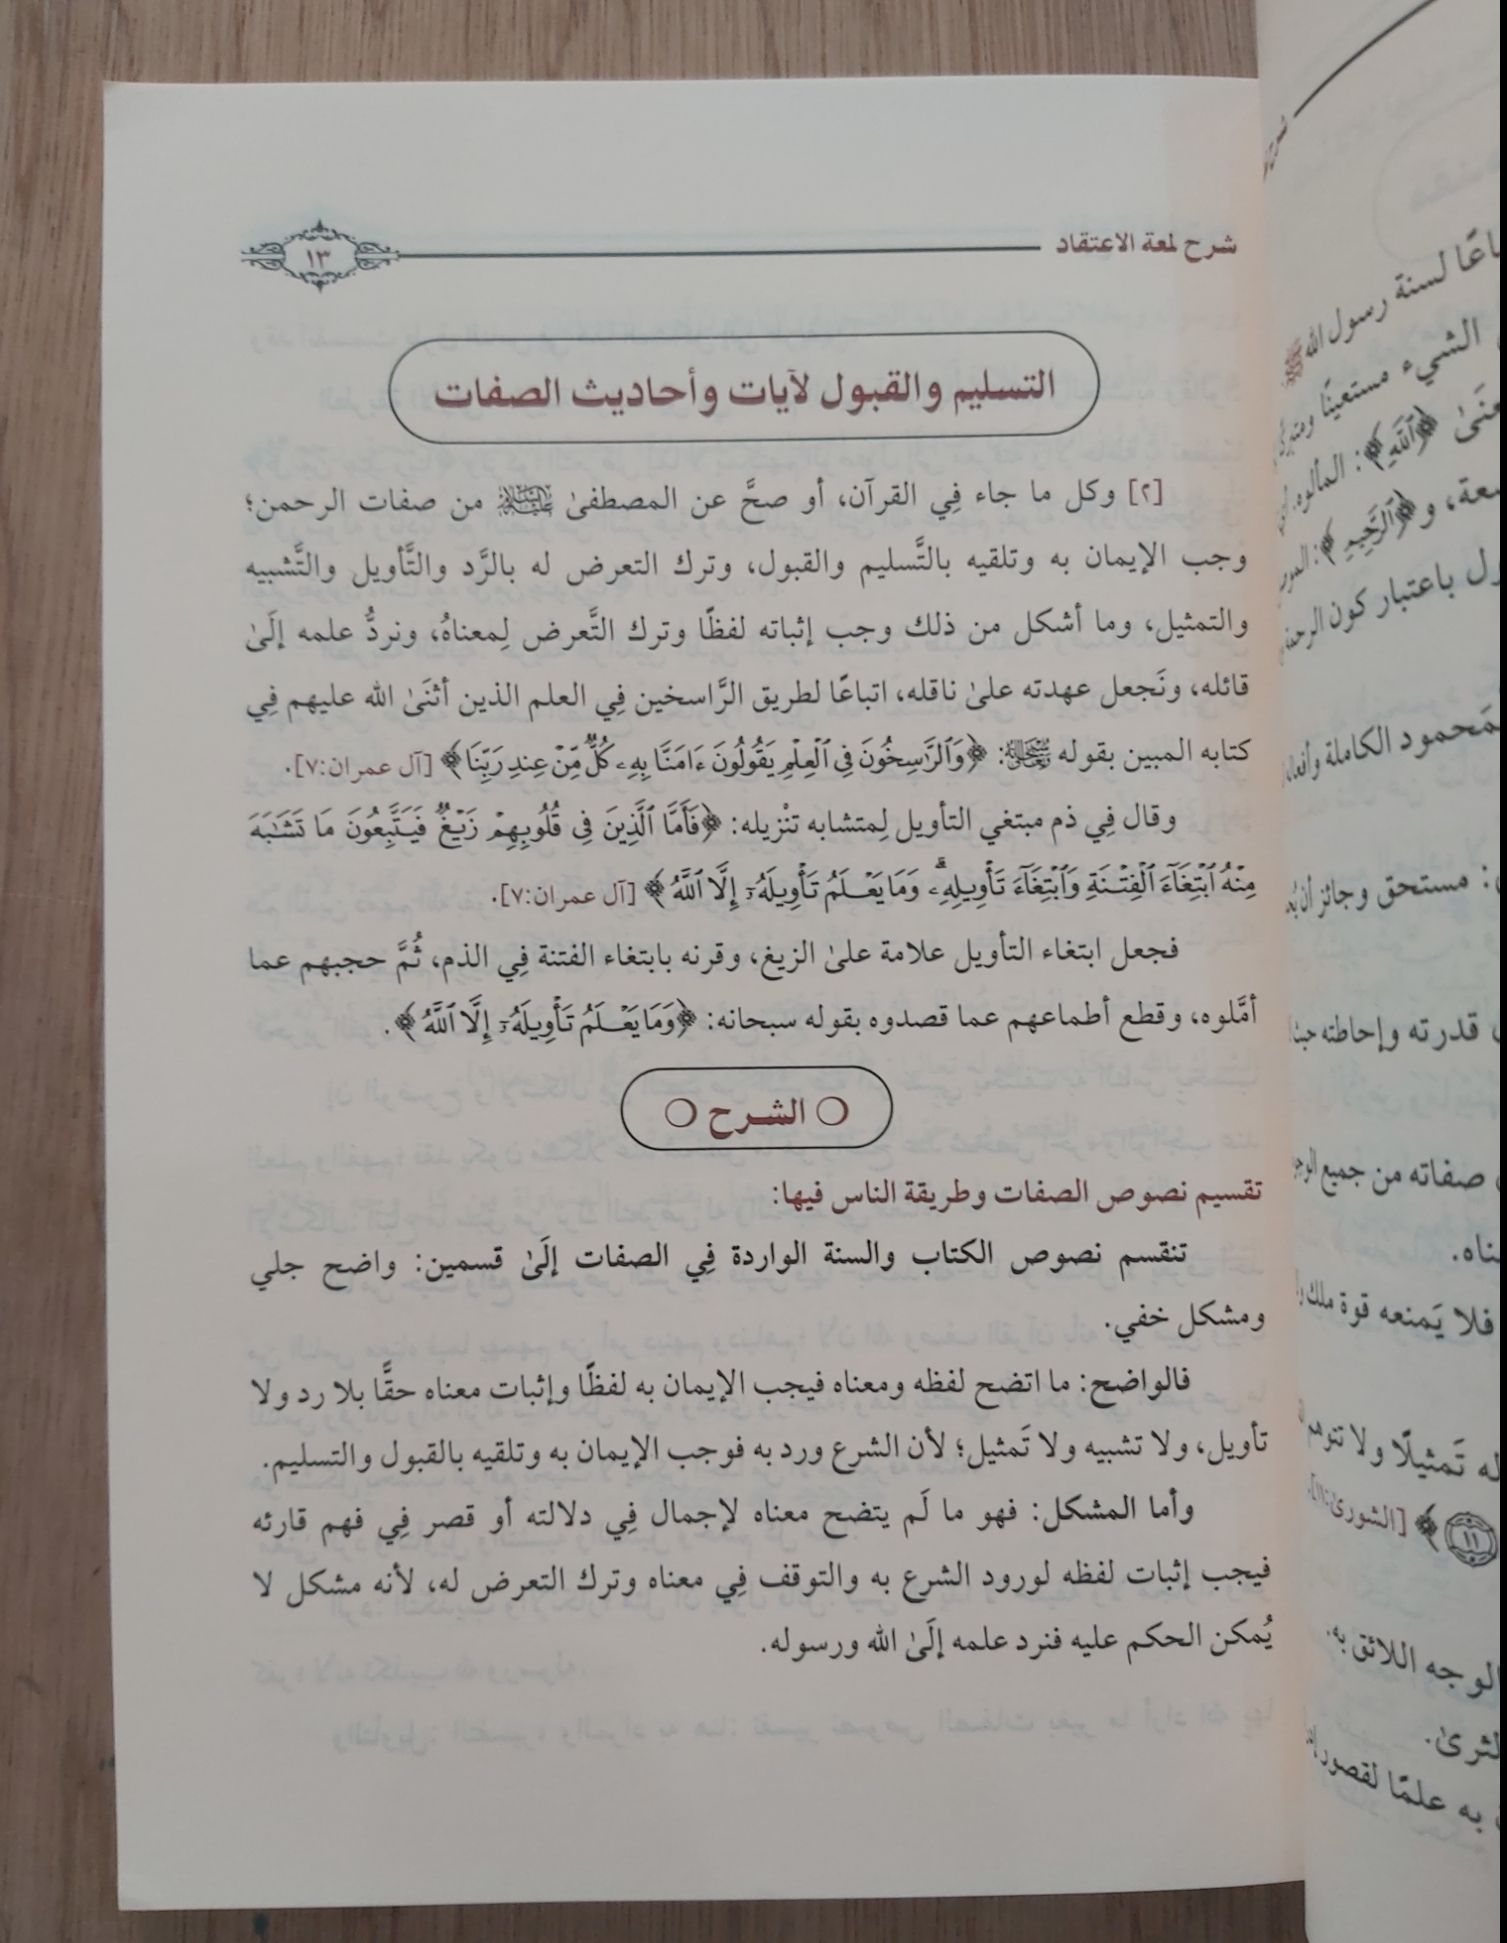 شرح لمعة الاعتقاد
١٣
التسليم والقبول لآيات وأحاديث الصفات
[٢] وكل ما جاء فِي القرآن، أو صحَّ عن المصطفىٰ عليه السلام من صفات الرحمن؛
وجب الإيمان به وتلقيه بالتَّسليم والقبول، وترك التعرض له بالرَّد والتَّأويل والتَّشبيه
والتمثيل، وما أشكل من ذلك وجب إثباته لفظًا وترك التَّعرض لِمعناهُ، ونردُّ علمه إلَىٰ
قائله، ونَجعل عهدته علىٰ ناقله، اتباعًا لطريق الرَّاسخين فِي العلم الذين أثنَىٰ الله عليهم فِي
كتابه المبين بقوله ﷾: ﴿وَٱلرَّٰسِخُونَ فِى ٱلۡعِلۡمِ يَقُولُونَ ءَامَنَّا بِهِۦ كُلّٞ مِّنۡ عِندِ رَبِّنَا﴾ [آل عمران:٧].
وقال فِي ذم مبتغي التأويل لِمتشابه تنْزيله: ﴿فَأَمَّا ٱلَّذِينَ فِى قُلُوبِهِمۡ زَيۡغٞ فَيَتَّبِعُونَ مَا تَشَٰبَهَ
مِنۡهُ ٱبۡتِغَآءَ ٱلۡفِتۡنَةِ وَٱبۡتِغَآءَ تَأۡوِيلِهِۦۗ وَمَا يَعۡلَمُ تَأۡوِيلَهُۥٓ إِلَّا ٱللَّهُ﴾ [آل عمران:٧].
فجعل ابتغاء التأويل علامة علىٰ الزيغ، وقرنه بابتغاء الفتنة فِي الذم، ثُمَّ حجبهم عما
أمَّلوه، وقطع أطماعهم عما قصدوه بقوله سبحانه: ﴿وَمَا يَعۡلَمُ تَأۡوِيلَهُۥٓ إِلَّا ٱللَّهُ﴾.
○ الشرح ○
تقسيم نصوص الصفات وطريقة الناس فيها:
تنقسم نصوص الكتاب والسنة الواردة فِي الصفات إلَىٰ قسمين: واضح جلي
ومشكل خفي.
فالواضح: ما اتضح لفظه ومعناه فيجب الإيمان به لفظًا وإثبات معناه حقًّا بلا رد ولا
تأويل، ولا تشبيه ولا تَمثيل؛ لأن الشرع ورد به فوجب الإيمان به وتلقيه بالقبول والتسليم.
وأما المشكل: فهو ما لَم يتضح معناه لإجمال فِي دلالته أو قصر فِي فهم قارئه
فيجب إثبات لفظه لورود الشرع به والتوقف فِي معناه وترك التعرض له، لأنه مشكل لا
يُمكن الحكم عليه فنرد علمه إلَىٰ الله ورسوله.
لسنة رسول الله ﷺ
الشيء مستعينًا
﴿ٱللَّهِ﴾: المألوه
و﴿ٱلرَّحِيمِ﴾:
باعتبار كون الرحمة
الكاملة
مستحق وجائز أن
قدرته وإحاطته
صفاته من جميع
فلا يَمنعه قوة ملك
له تَمثيلًا ولا تتوهم
﴿١١﴾ [الشورىٰ:١١].
الوجه اللائق به.
به علمًا لقصور